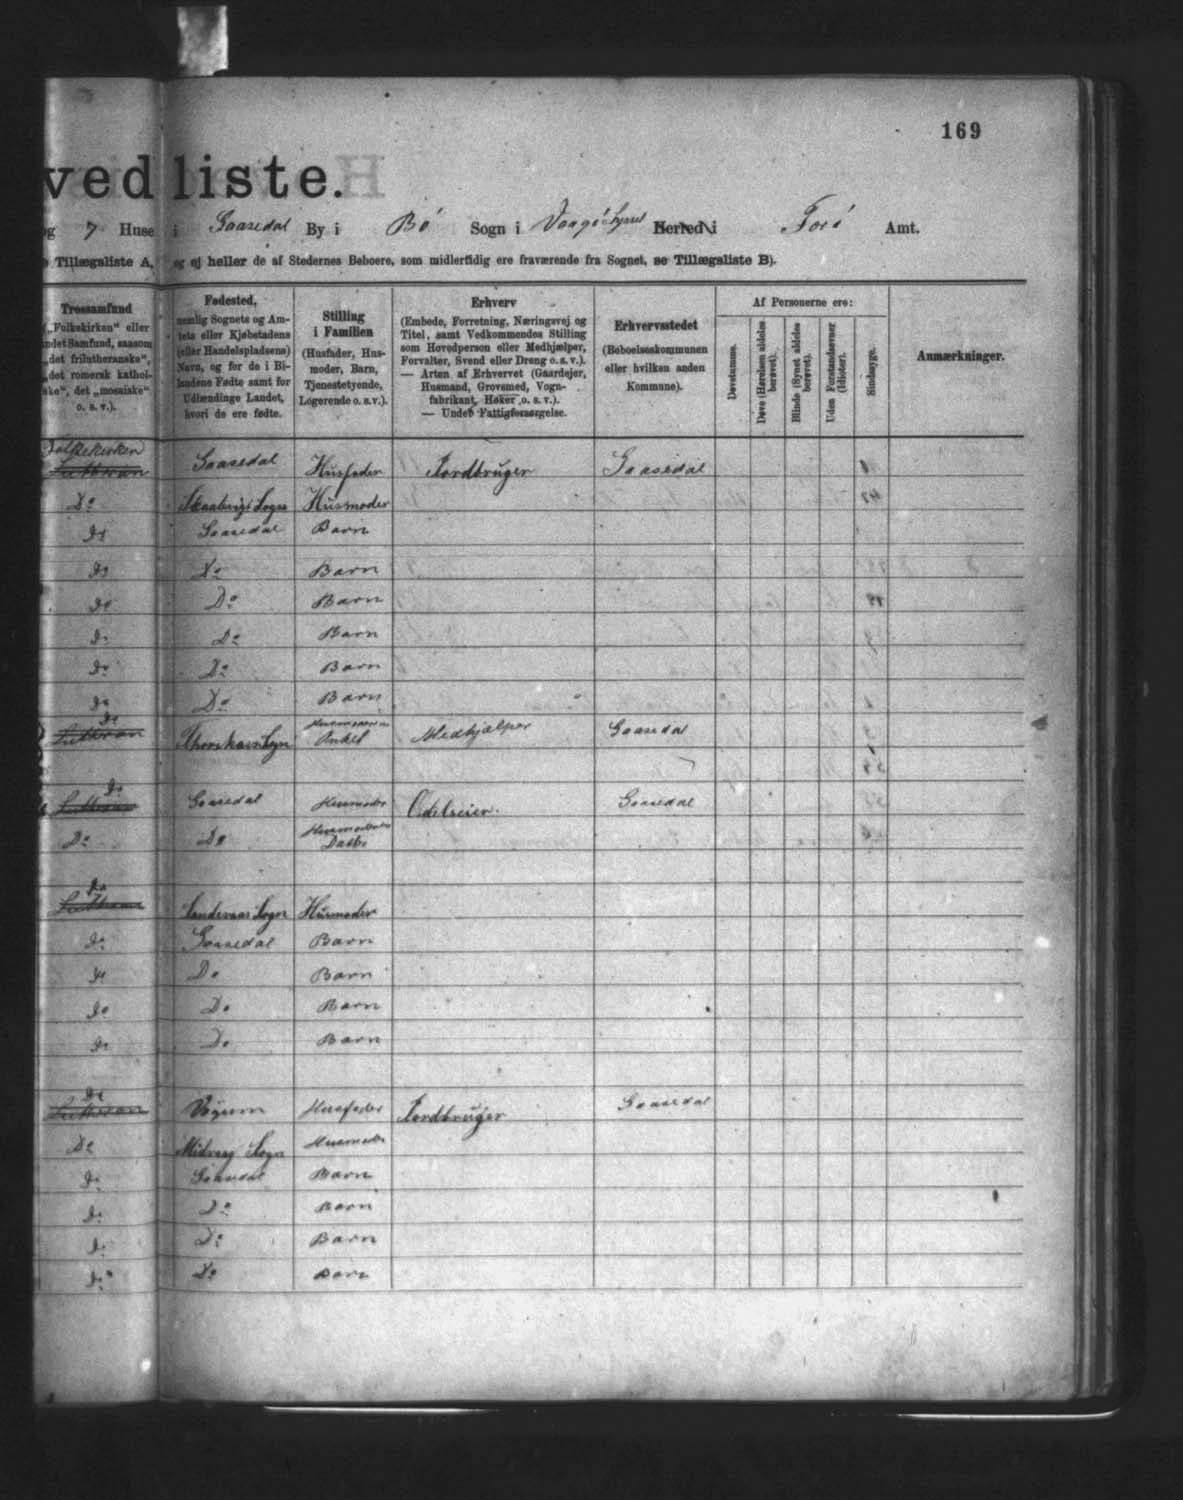 169
vedliste.
og 7 Huse i Gaasedal By i Bø Sogn i Vaagø Syssel Herred i Forø Amt.
e Tillægsliste A, og ej heller de af Stedernes Beboere, som midlertidig ere fraværende fra Sognet, se Tillægsliste B).
Trossamfund
(„Folkekirken" eller
andet Samfund, saasom
„det frilutheranske",
„det romersk kathol-
ske", det „mosaiske"
o. s. v.).
Fødested,
nemlig Sognets og Am-
tets eller Kjøbstadens
(eller Handelspladsens)
Navn, og for de i Bi-
landene Fødte samt for
Udlændinge Landet,
hvori de ere fødte.
Stilling
i Familien
(Husfader, Hus-
moder, Barn,
Tjenestetyende,
Logerende o. s. v.).
Erhverv
(Embede, Forretning, Næringsvej og
Titel, samt Vedkommendes Stilling
som Hovedperson eller Medhjælper,
Forvalter, Svend eller Dreng o. s. v.).
— Arten af Erhvervet (Gaardejer,
Husmand, Grovsmed, Vogn-
fabrikant, Høker o. s. v.).
— Under Fattigforsørgelse.
Erhvervsstedet
(Beboelseskommunen
eller hvilken anden
Kommune).
Af Personerne ere:
Døvstumme.
Døve (Hørelsen aldeles
berøvet).
Blinde (Synet aldeles
berøvet).
Uden Forstandsevner
(Idioter).
Sindssyge.
Anmærkninger.
Folkekirken
Luthran Gaasedal Husfader Jordbruger Gaasedal
Do Sogn Husmoder
do Gaasedal Barn
do Do Barn
do Do Barn
do Do Barn
do Do Barn
do Do Barn
do
Luthran Thorshavn Sgn Husmoderens Onkel Medhjælper Gaasedal
do
Luthran Gaasedal Husmoder Odelseier. Gaasedal
Do Do Husmoderens Datter
do
Luthran Sandevaag Sogn Husmoder
do Gaasedal Barn
do Do Barn
do Do Barn
do Do Barn
do
Luthran Husfader Jordbruger Gaasedal
Do Midvaag Sogn Husmoder
do Gaasedal Barn
do Do Barn
do Do Barn
do Do Barn